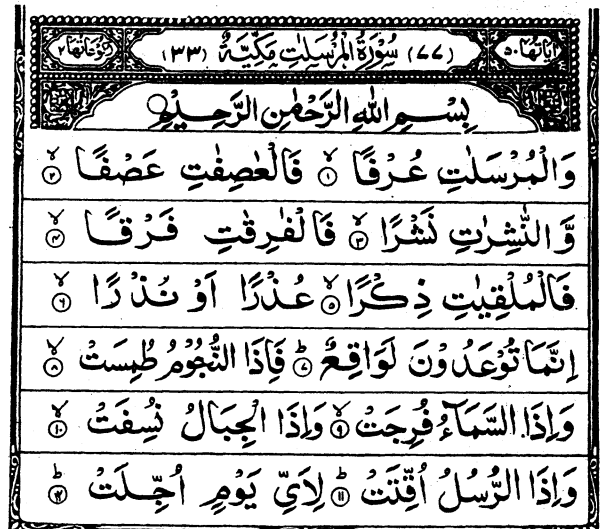 اٰیَاتُهَا ۵۰ (۷۷) سُوْرَةُ الْمُرْسَلٰتِ مَكِّيَّةٌ (۳۳) رُكُوْعَاتُهَا ۲
بِسْمِ اللهِ الرَّحْمٰنِ الرَّحِيْمِ
وَالْمُرْسَلٰتِ عُرْفًا ۙ۱ فَالْعٰصِفٰتِ عَصْفًا ۙ۲
وَّالنّٰشِرٰتِ نَشْرًا ۙ۳ فَالْفٰرِقٰتِ فَرْقًا ۙ۴
فَالْمُلْقِيٰتِ ذِكْرًا ۙ۵ عُذْرًا اَوْ نُذْرًا ۙ۶
اِنَّمَا تُوْعَدُوْنَ لَوَاقِعٌ ؕ۷ فَاِذَا النُّجُوْمُ طُمِسَتْ ۙ۸
وَاِذَا السَّمَآءُ فُرِجَتْ ۙ۹ وَاِذَا الْجِبَالُ نُسِفَتْ ۙ۱۰
وَاِذَا الرُّسُلُ اُقِّتَتْ ؕ۱۱ لِاَيِّ يَوْمٍ اُجِّلَتْ ؕ۱۲